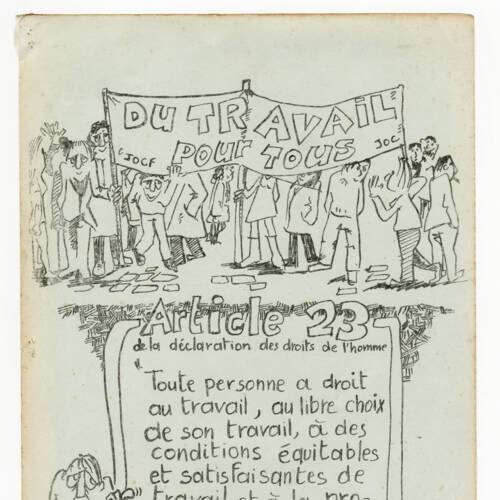 DU TRAVAIL
POUR TOUS
JOCF
JOC
Article 23
de la déclaration des droits de l'homme
"Toute personne a droit
au travail, au libre choix
de son travail, à des
conditions équitables
et satisfaisantes de
travail et à la pro-